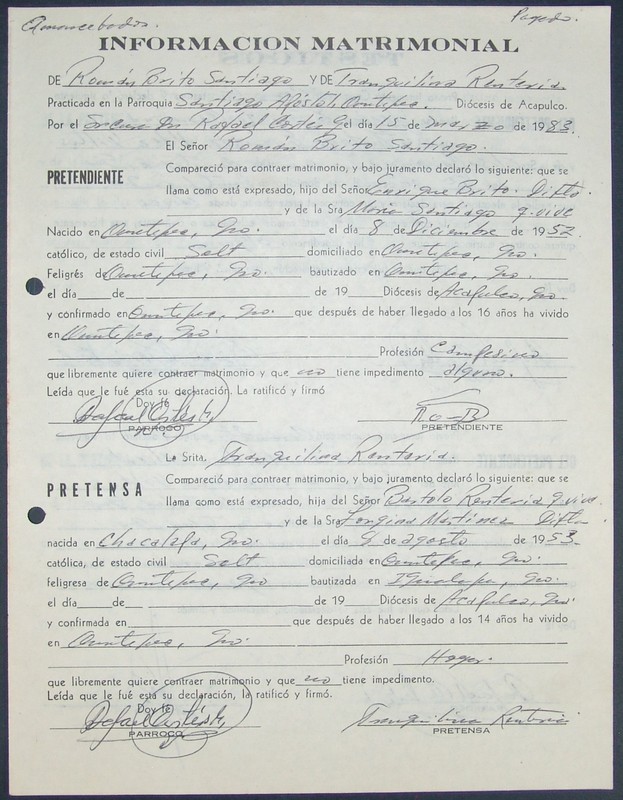 Amancebados. Pagado.
INFORMACION MATRIMONIAL
DE Román Brito Santiago Y DE Tranquilina Rentería
Practicada en la Parroquia Santiago Apóstol Ometepec. Diócesis de Acapulco.
Por el Rafael Cortés G el día 15 de marzo de 1983.
El Señor Román Brito Santiago.
PRETENDIENTE
Compareció para contraer matrimonio, y bajo juramento declaró lo siguiente: que se
llama como está expresado, hijo del Señor Enrique Brito. Difto.
y de la Sra María Santiago q. vive
Nacido en Ometepec, Gro. el día 8 de Diciembre de 1952
católico, de estado civil Solt domiciliado en Ometepec, Gro.
Feligrés de Ometepec, Gro. bautizado en Ometepec, Gro.
el día de de 19 Diócesis de Acapulco, Gro.
y confirmado en Ometepec, Gro. que después de haber llegado a los 16 años ha vivido
en Ometepec, Gro.
Profesión Campesino
que libremente quiere contraer matrimonio y que no tiene impedimento alguno.
Leída que le fué esta su declaración. La ratificó y firmó
Doy fé
PARROCO
PRETENDIENTE
La Srita. Tranquilina Rentería.
PRETENSA
Compareció para contraer matrimonio, y bajo juramento declaró lo siguiente: que se
llama como está expresado, hija del Señor Bartolo Rentería q. vive
y de la Sra Longina Martínez Difta
nacida en Chacalapa, Gro. el día 8 de agosto de 1953
católica, de estado civil Solt domiciliada en Ometepec, Gro.
feligresa de Ometepec, Gro bautizada en Igualapa, Gro.
el día de de 19 Diócesis de Acapulco, Gro.
y confirmada en que después de haber llegado a los 14 años ha vivido
en Ometepec, Gro.
Profesión Hogar.
que libremente quiere contraer matrimonio y que no tiene impedimento.
Leída que le fué está su declaración, la ratificó y firmó.
Doy fé
PARROCO
Tranquilina Rentería
PRETENSA